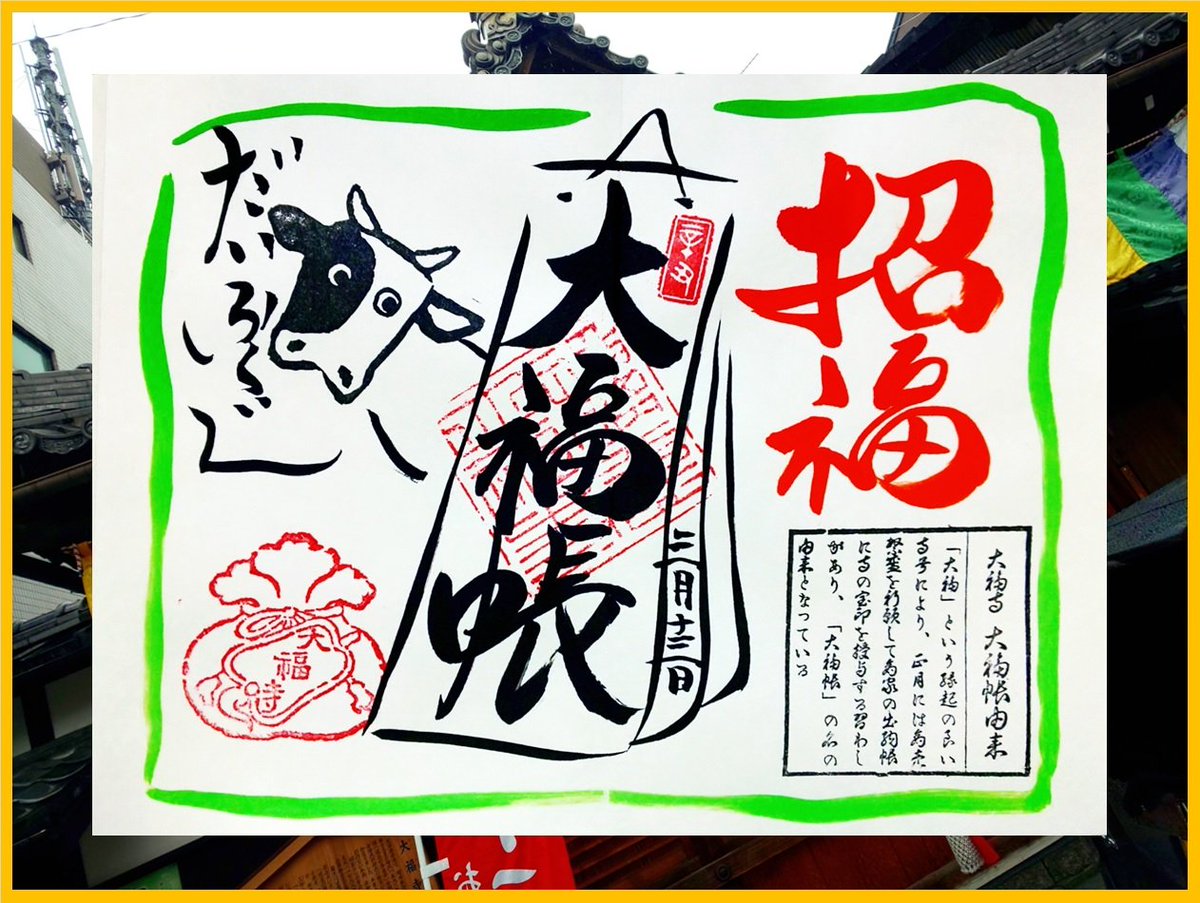 招福
大福寺 大福帳由来
「大福」という縁起の良い
寺号により、正月には商売
繁盛を祈願して商家の出納帳
に寺の宝印を授与する習わし
があり、「大福帳」の名の
由来となっている
大福帳
二月十三日
だいふくじ
大
福
寺
大福寺